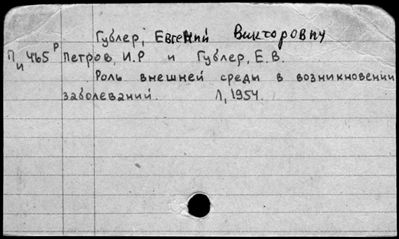 Гублер, Евгений Викторович
П и 465 Р Петров, И.Р и Гублер, Е.В.
Роль внешней среды в возникновении
заболеваний. Л, 1954.